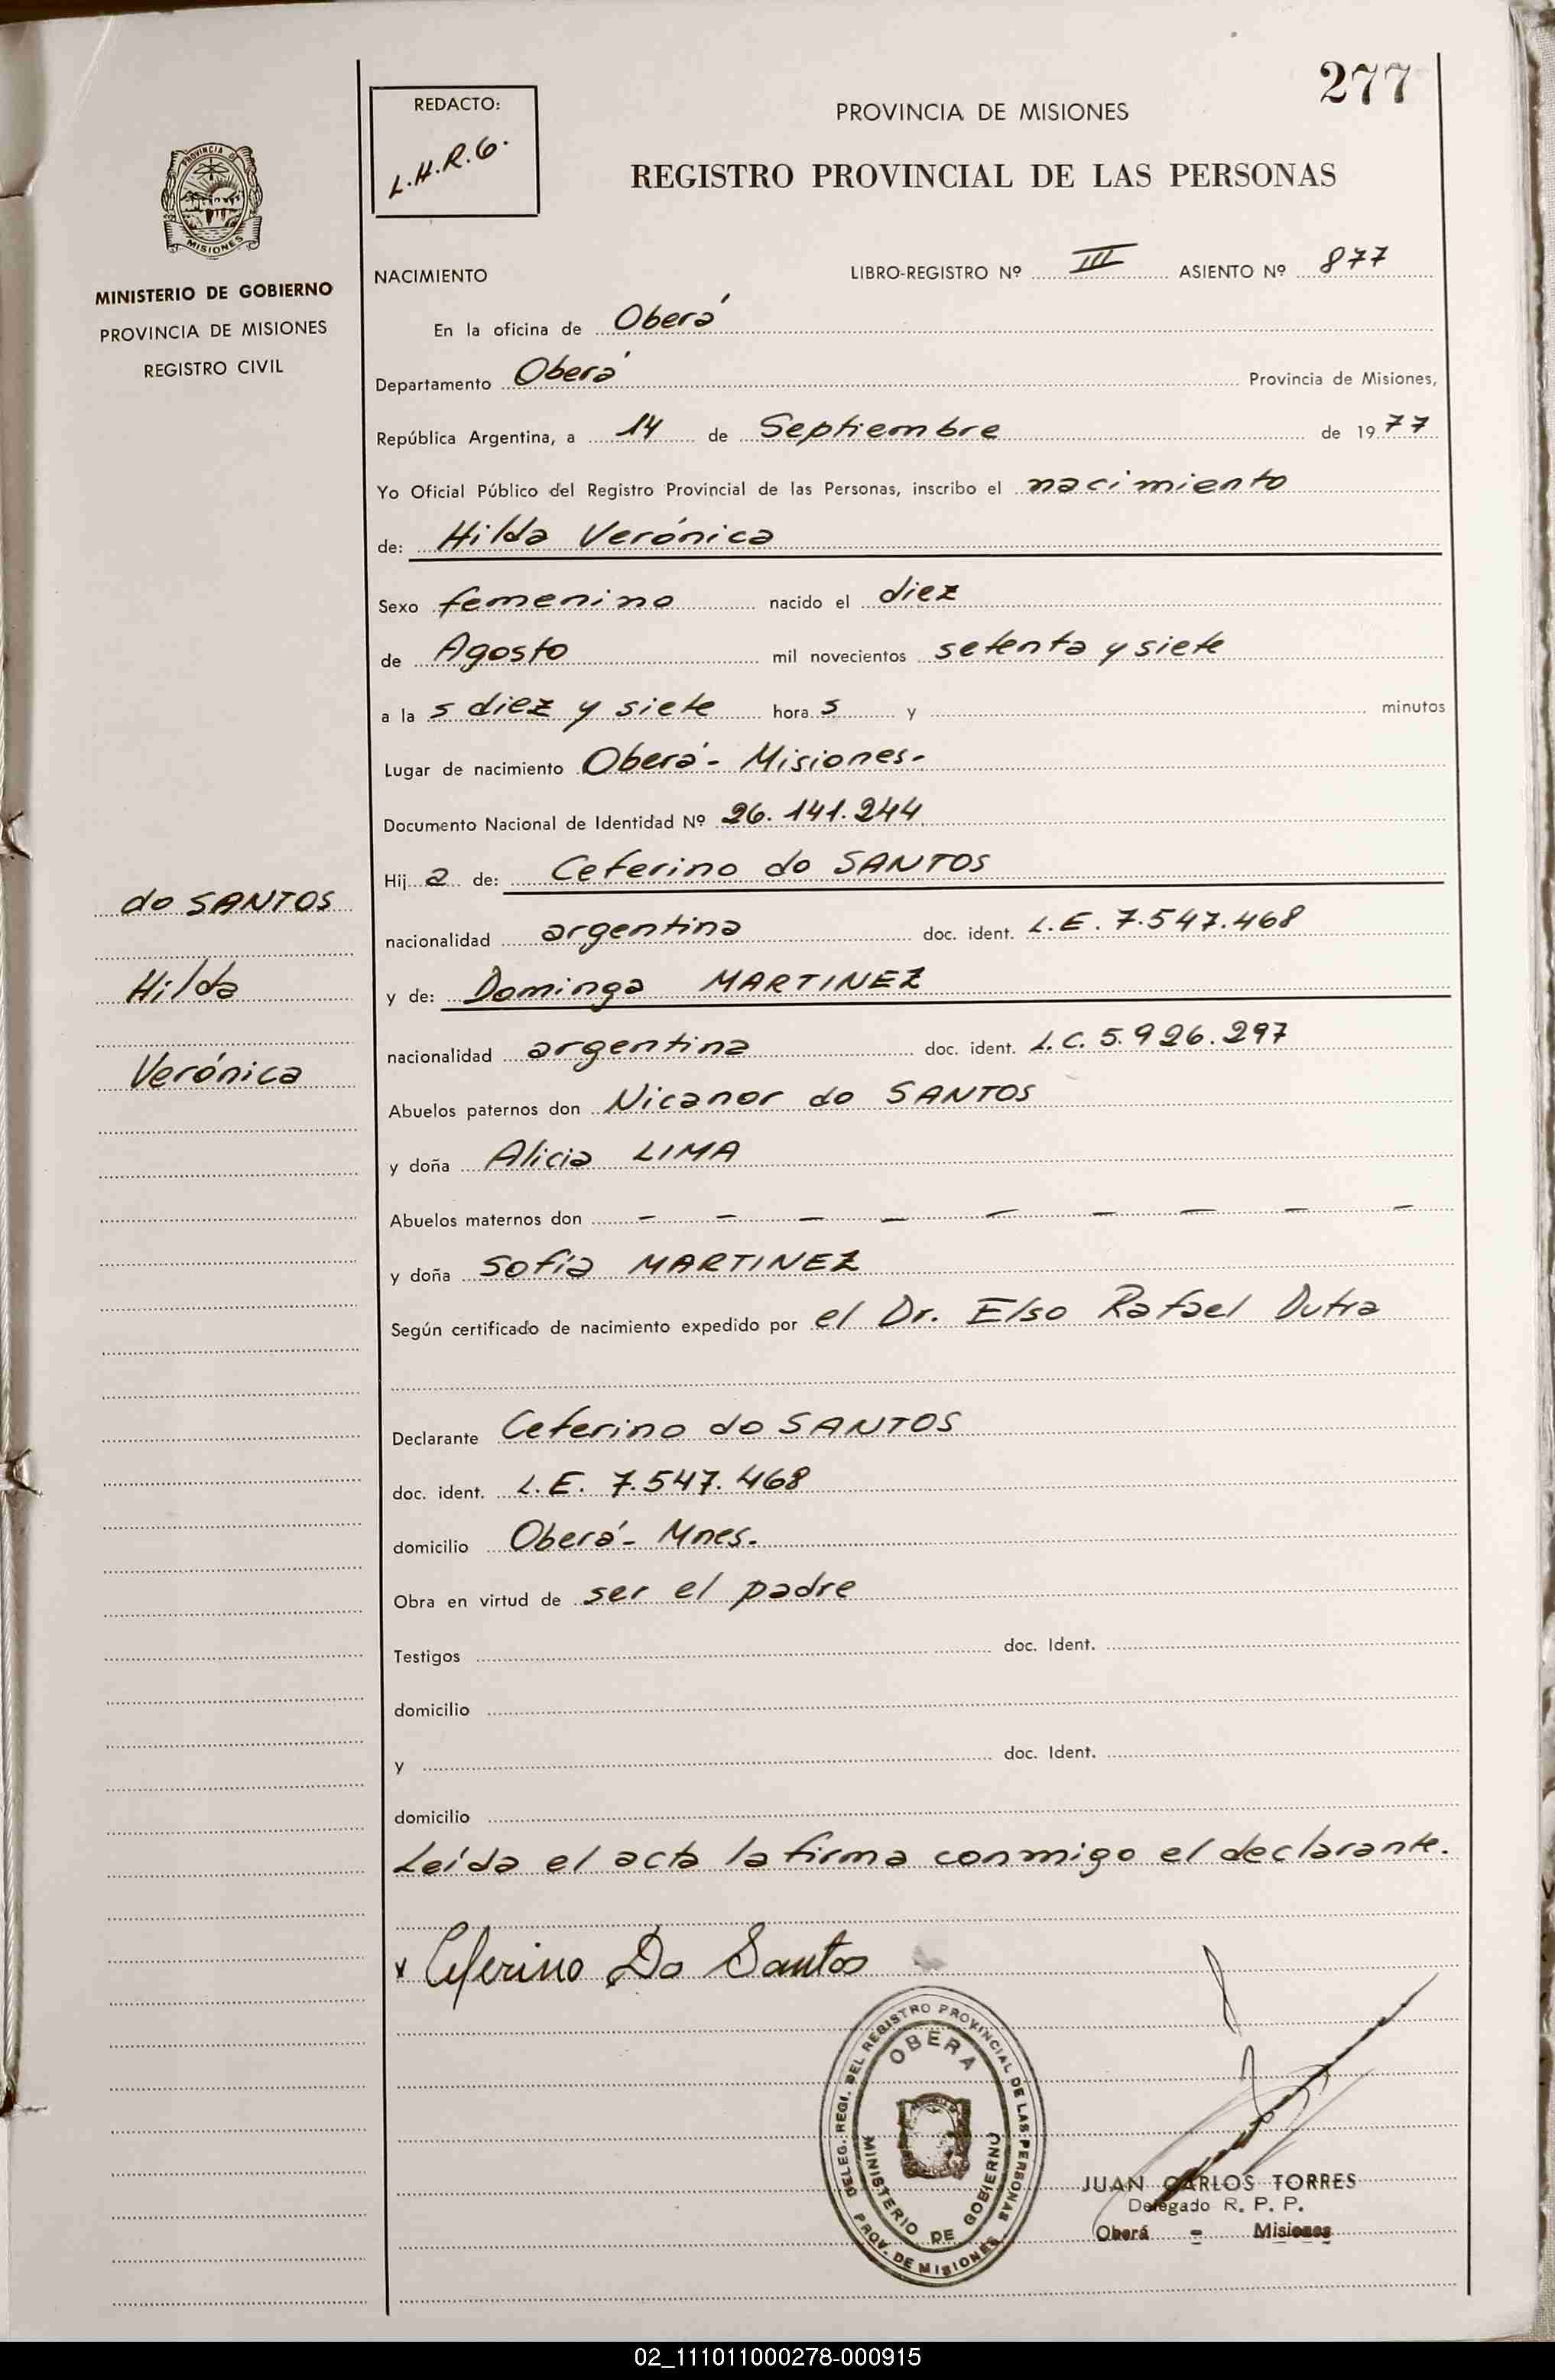 277
REDACTO:
L.H.R.G.
PROVINCIA DE MISIONES
REGISTRO PROVINCIAL DE LAS PERSONAS
PROVINCIA DE
MISIONES
MINISTERIO DE GOBIERNO
PROVINCIA DE MISIONES
REGISTRO CIVIL
NACIMIENTO LIBRO-REGISTRO Nº III ASIENTO Nº 877
En la oficina de Oberá
Departamento Oberá Provincia de Misiones,
República Argentina, a 14 de Septiembre de 1977
Yo Oficial Público del Registro Provincial de las Personas, inscribo el nacimiento
de: Hilda Verónica
Sexo femenino nacido el diez
de Agosto mil novecientos setenta y siete
a las diez y siete horas y minutos
Lugar de nacimiento Oberá - Misiones-
Documento Nacional de Identidad Nº 26.141.244
Hija de: Ceferino do SANTOS
nacionalidad argentina doc. ident. L.E. 7.547.468
y de: Dominga MARTINEZ
nacionalidad argentina doc. ident. L.C. 5.926.297
Abuelos paternos don Nicanor do SANTOS
y doña Alicia LIMA
Abuelos maternos don - - - - - - - - -
y doña Sofía MARTINEZ
Según certificado de nacimiento expedido por el Dr. Elso Rafael Dutra
Declarante Ceferino do SANTOS
doc. ident. L.E. 7.547.468
domicilio Oberá - Mnes.
Obra en virtud de ser el padre
Testigos doc. Ident.
domicilio
y doc. Ident.
domicilio
Leída el acta la firma conmigo el declarante.
do SANTOS
Hilda
Verónica
x Ceferino Do Santos
DELEG. REGI. DEL REGISTRO PROVINCIAL DE LAS PERSONAS
PROV. DE MISIONES
OBERA
MINISTERIO DE GOBIERNO
JUAN CARLOS TORRES
Delegado R. P. P.
Oberá - Misiones
02_111011000278-000915